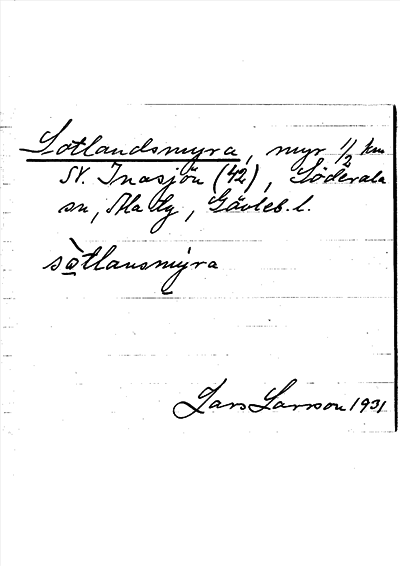 Sotlandsmyra, myr 1/2 km
SV. Inasjön (42), Söderala
sn, Ala Hg, Gävleb. l.
sòtlausmýra
Lars Larsson 1931